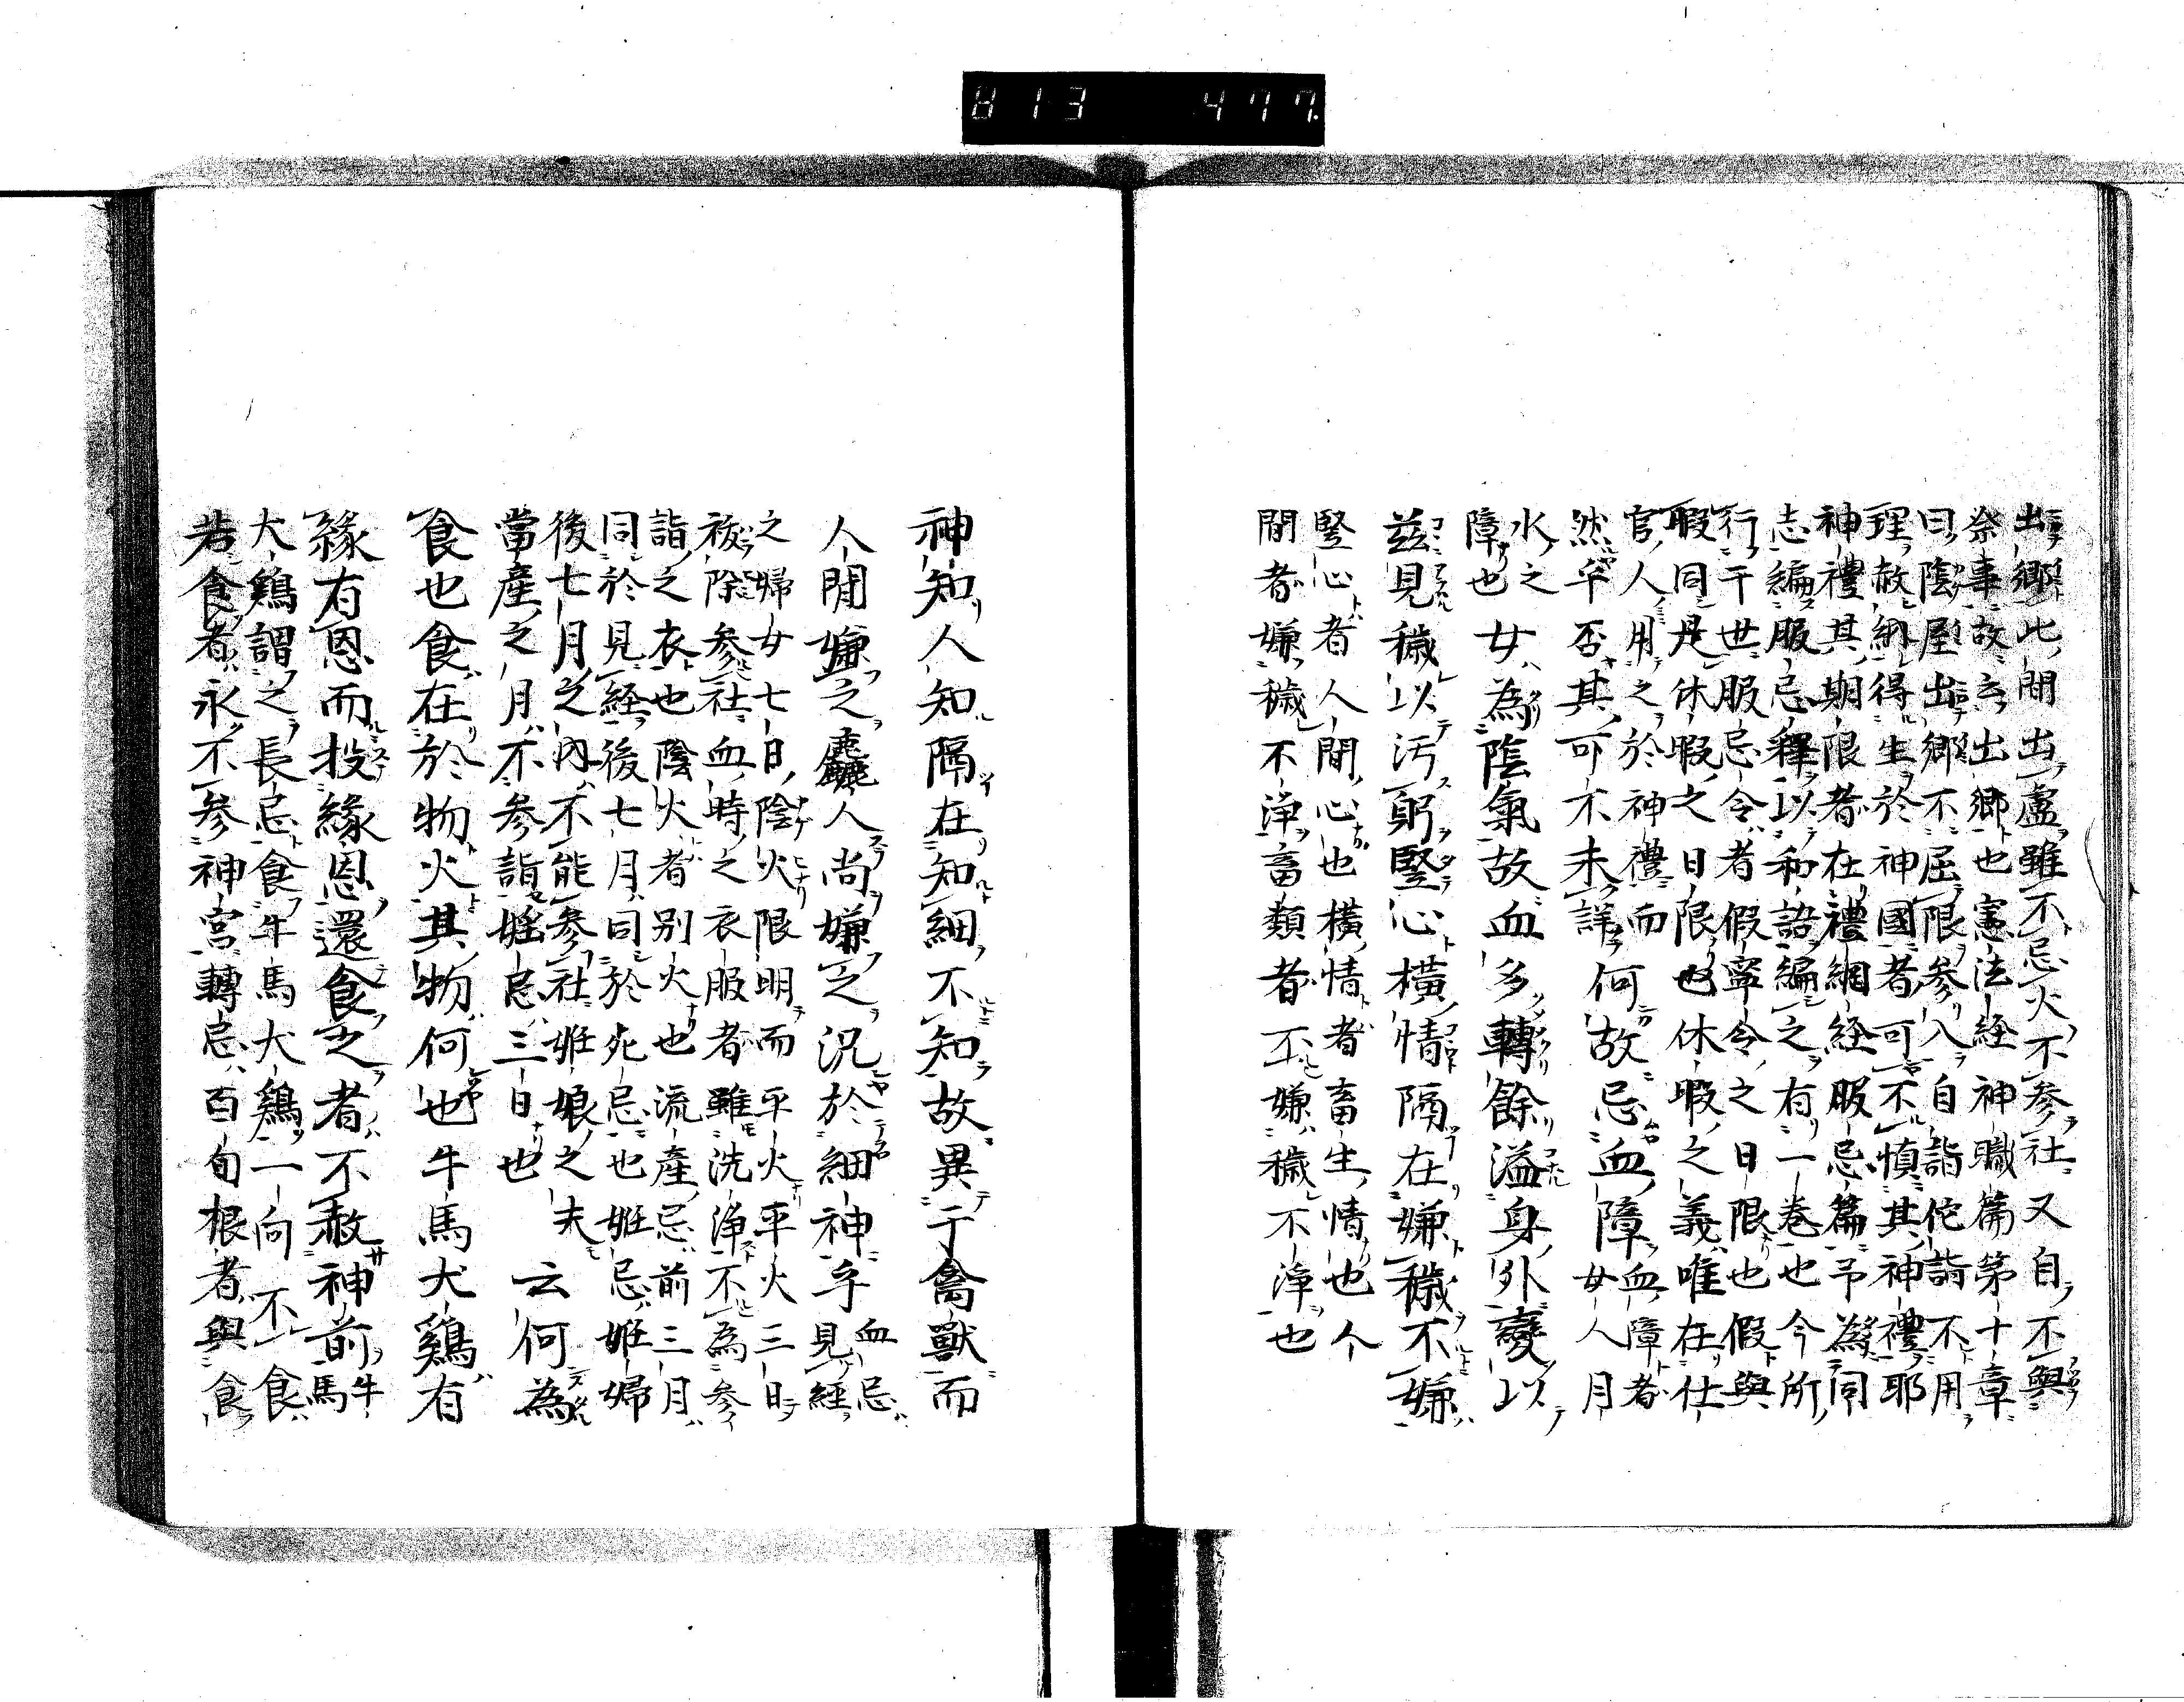 813 477
出郷此間出盧雖不忌火不参社又自不與
祭事故云出郷也憲法経神職篇第十章
曰陰屋出郷不屈限参入自詣佗詣不用
理赦納得生於神國者可不慎其神禮耶
神禮其期限者在禮綱経服忌篇予為同
志編服忌釋以和語編之有一巻也今所
行于世服忌令者假寧令之日限也假與
暇同是休暇之日限也休暇之義唯在仕
官人用之於神禮而
然乎否其可不未詳何故忌血障血障者女人月
水之
障也女為陰氣故血多轉餘溢身外變以
茲見穢以汚躬竪心横情隔在嫌穢不嫌
竪心者人間心也横情者畜生情也人
間者嫌穢不浄畜類者不嫌穢不浄也
神知人知隔在知細不知故異于禽獣而
人間嫌之麤人尚嫌之況於細神乎血忌見経
之婦女七日陰火限明而平火平火三日
祓除参社血時之衣服者雖洗浄不為参
詣之衣也陰火者別火也流産忌前三月
同於見経後七月同於死忌也姙忌姙婦
後七月之内不能参社姙娘之夫
當産之月不参詣婬忌三日也云何為
食也食在於物火其物何也牛馬犬鶏有
縁有恩而投縁恩還食之者不赦神前牛馬
犬鶏謂之長忌食牛馬犬鶏一向不食
若食者永不参神宮轉忌百旬根者與食